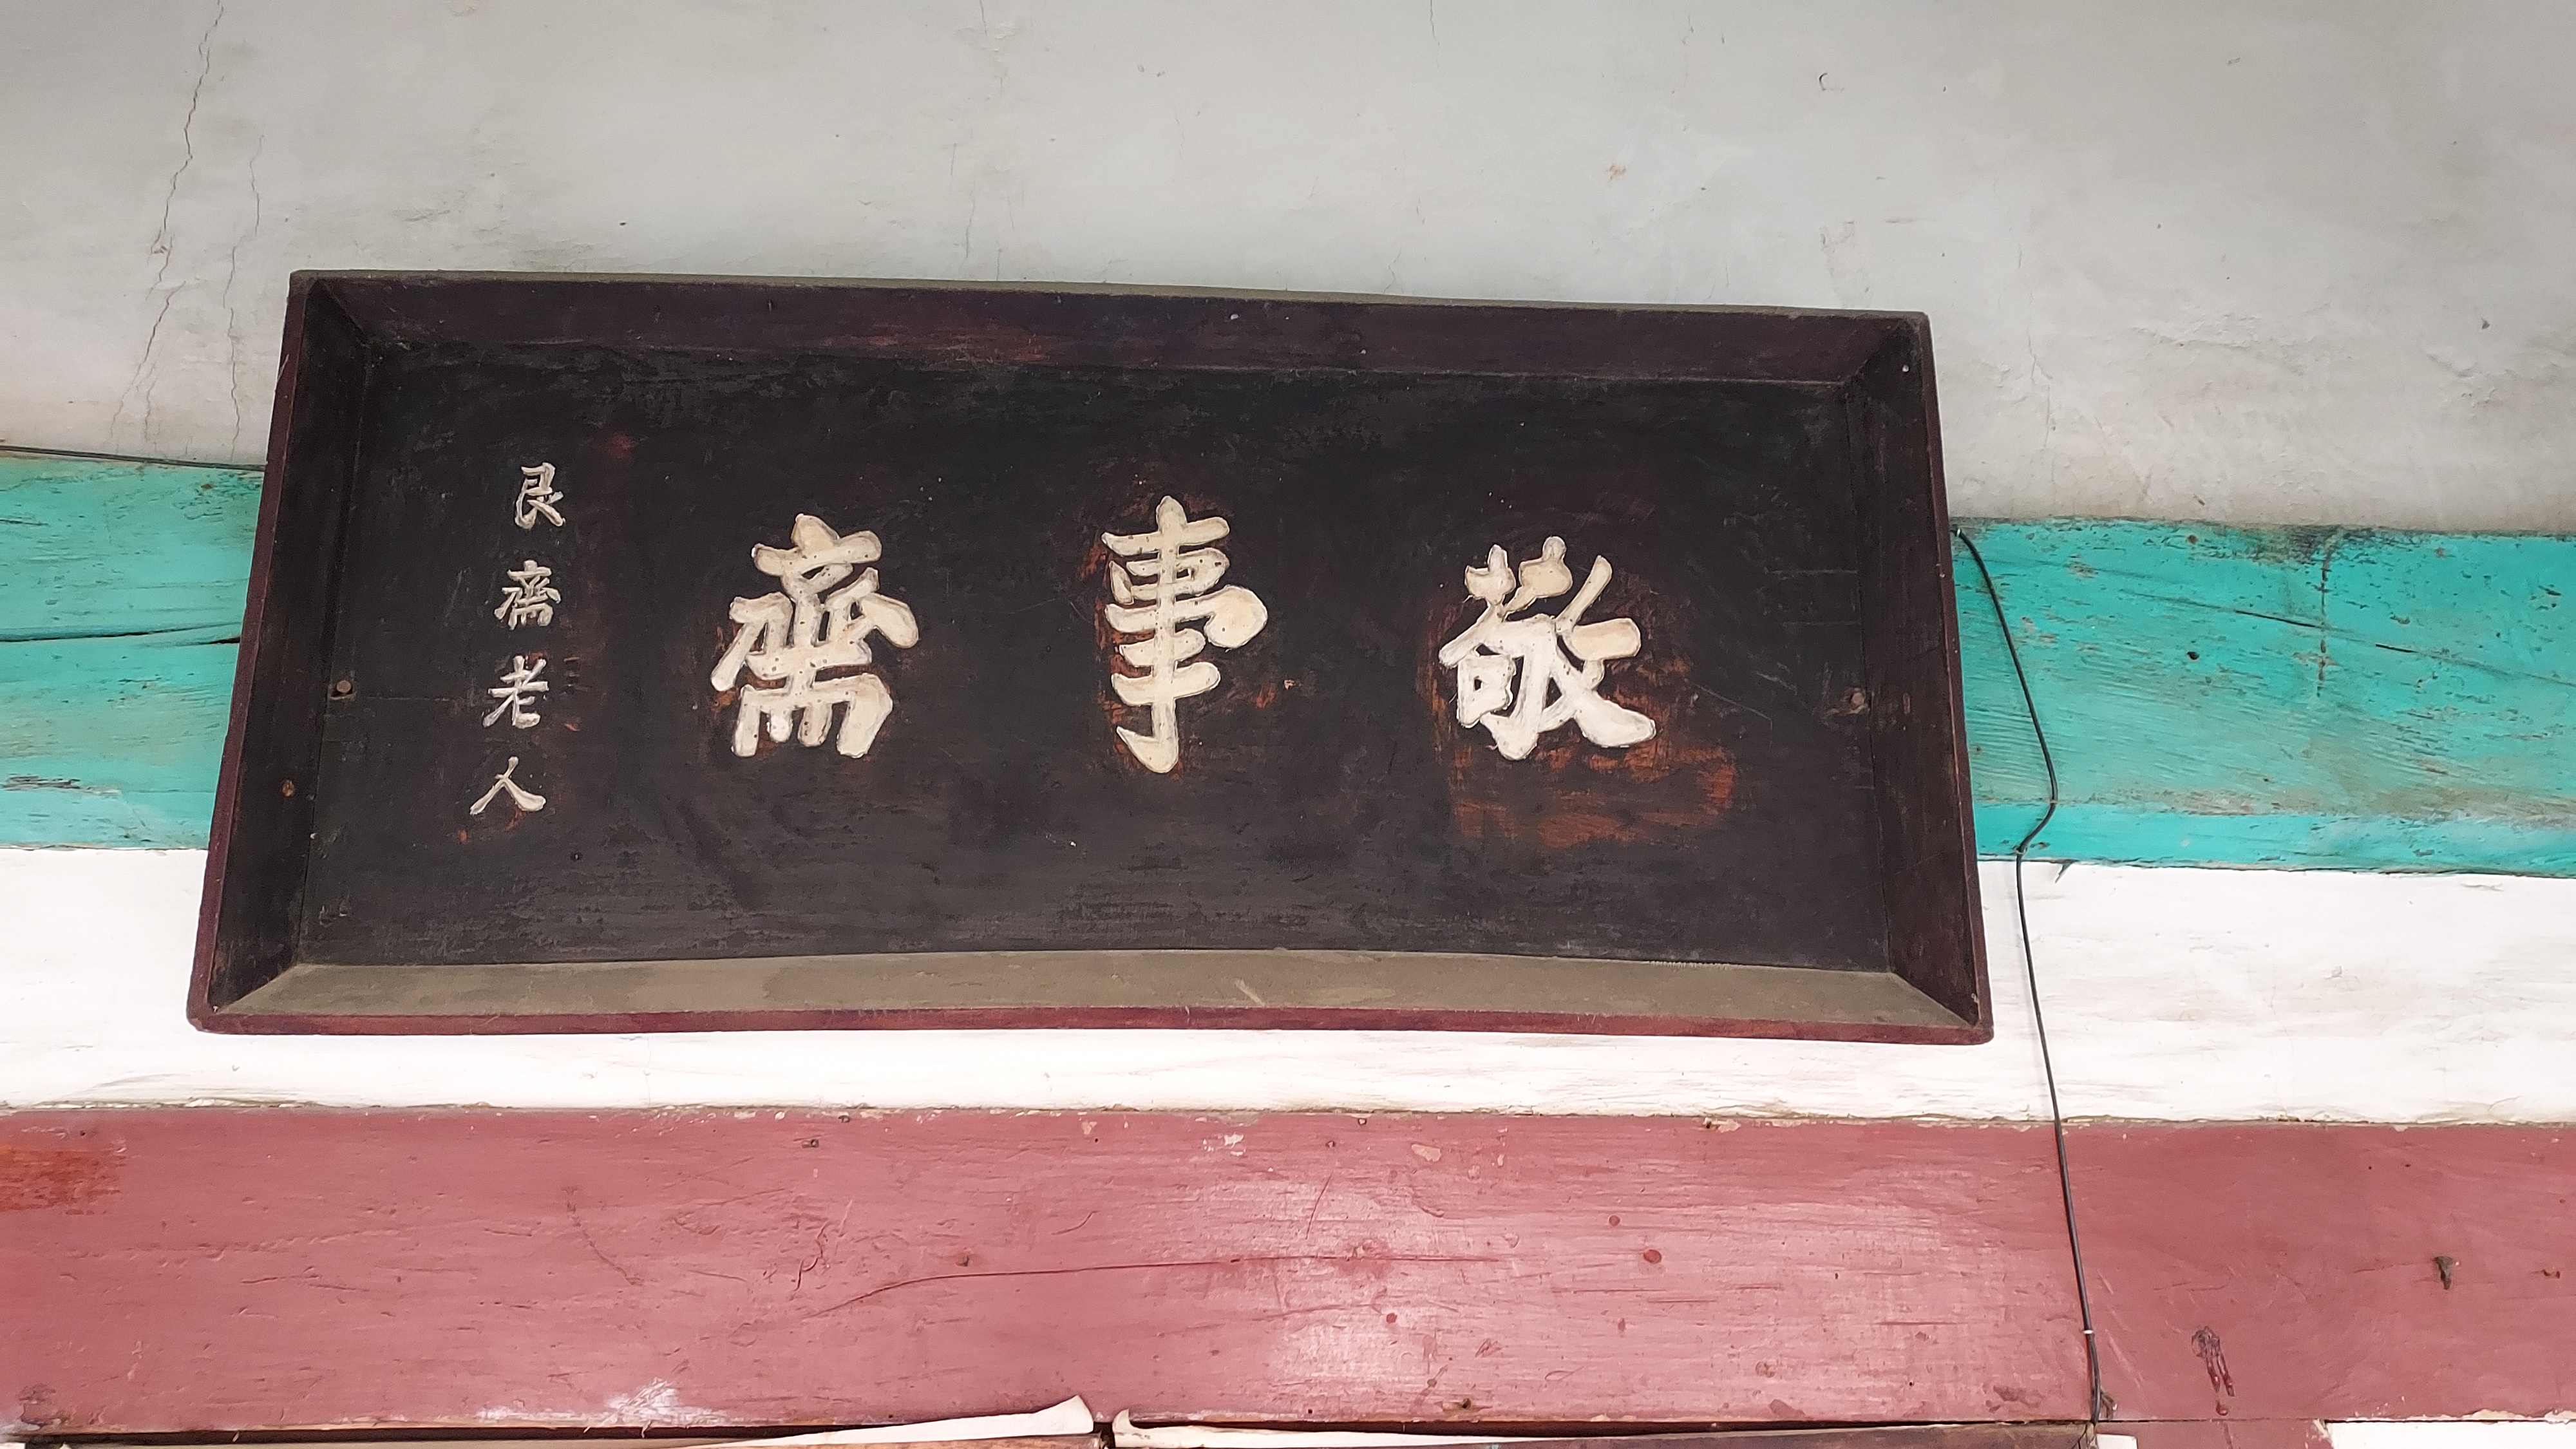 敬事齋
艮齋老人